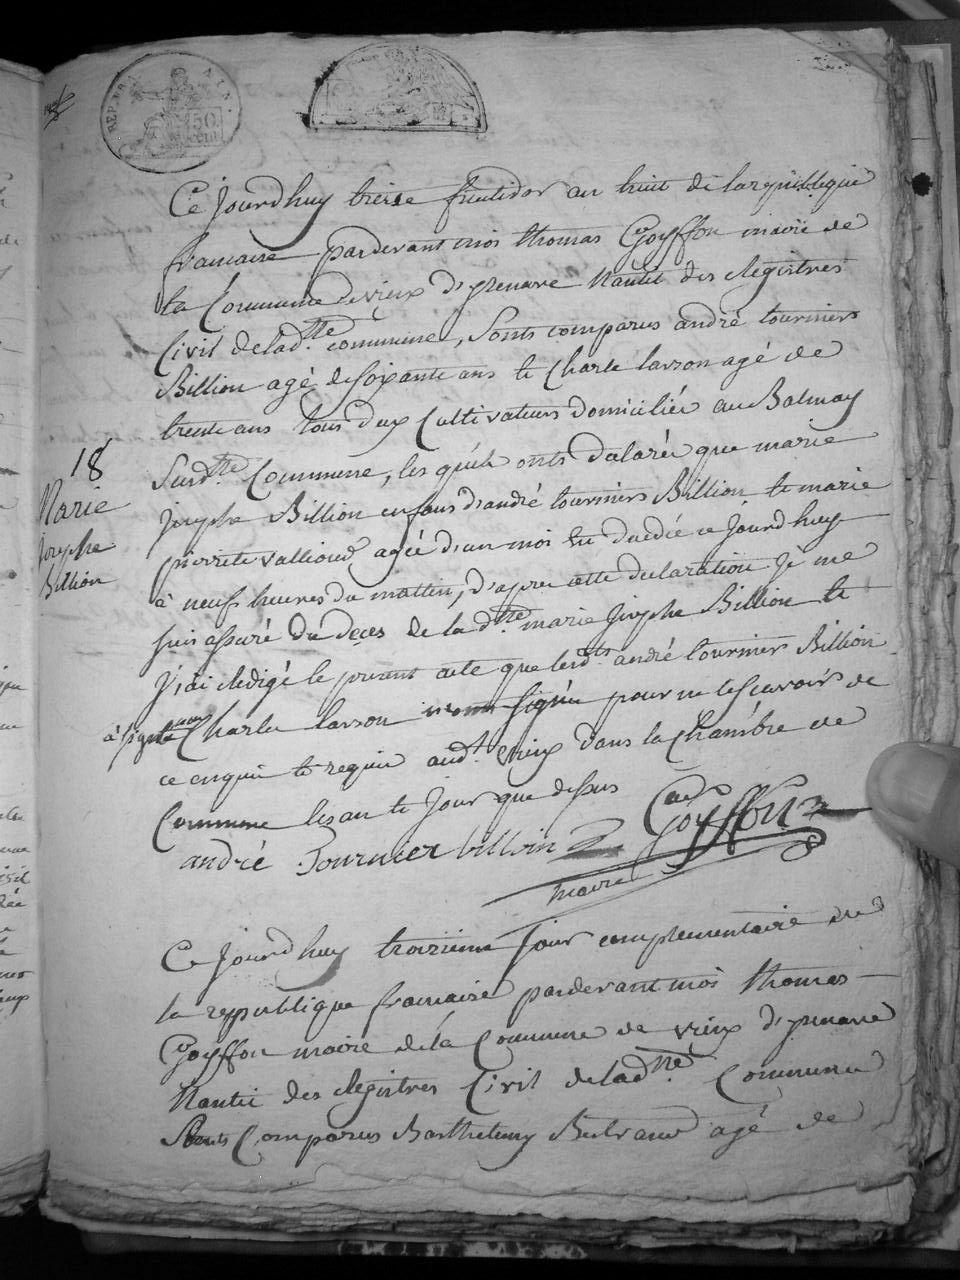 REP. FRA. AIN.
50 cent.
Ce Jourdhuy treize fructidor an huit de la republique
francaise pardevant moi thomas Goyffon maire de
la Commune de vieux d'yzenave Nanti des Registres
Civil de lad.tte commune, Sonts comparus andré tournier
Billion agé de soixante ans te Charle larson agé de
trente ans tous deux Cultivateurs domicilié au Balmay
Susd.tte Commune, les quels onts déclaré que marie
Josephe Billion enfans d'andré tournier Billion te marie
pierrete vallioud agée d'un mois
à neuf heures du mattin, d'apres cette declaration Je me
suis assuré du deces de la d.tte marie Josephe Billion te
J'ai Redigé le present acte que lesd.ts andré tournier Billion
à signé Charle larson pour ne le scavoirs de
ce enquis te requis aud.t vieux dans la Chambre de
Commune les an te Jour que dessus
andré Tournier billion Goyffon
maire
18
Marie
Josephe
Billion
Ce Jourdhuy troizieme Jour complementaire de
la republique francaise pardevant moi thomas
Goyffon maire de la Commune de vieux d'yzenave
Nanti des Registres Civil de lad.tte Commune
Sonts Comparus Barthelemy agé de